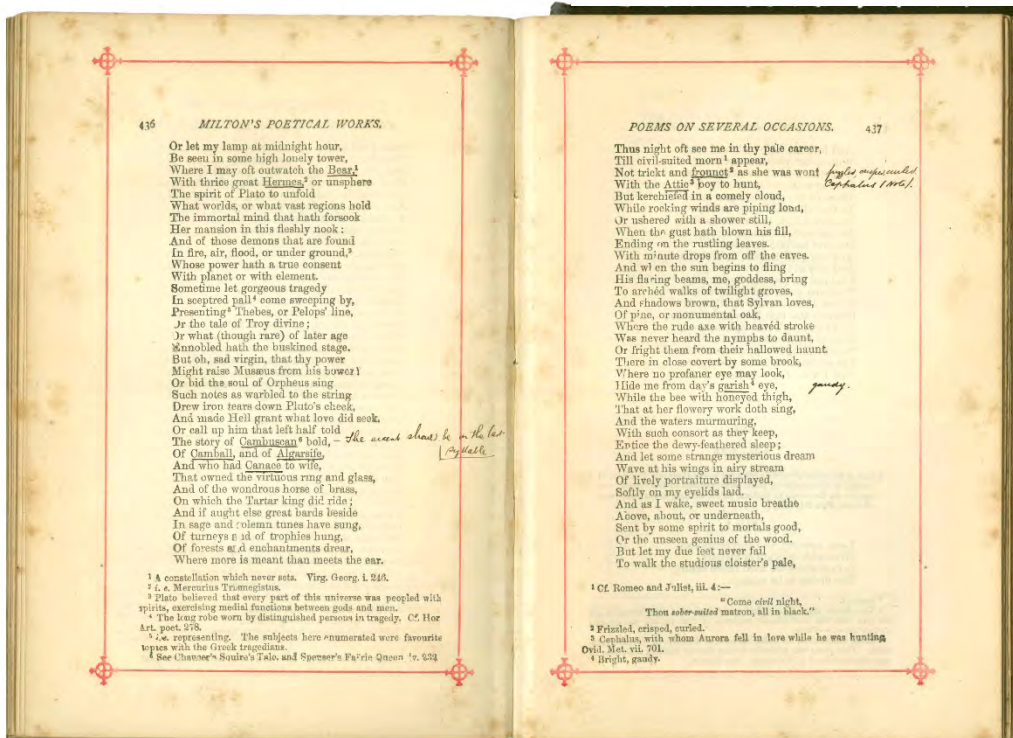 436 MILTON'S POETICAL WORKS.
Or let my lamp at midnight hour,
Be seen in some high lonely tower,
Where I may oft outwatch the Bear,¹
With thrice great Hermes,² or unsphere
The spirit of Plato to unfold
What worlds, or what vast regions hold
The immortal mind that hath forsook
Her mansion in this fleshly nook:
And of those demons that are found
In fire, air, flood, or under ground,³
Whose power hath a true consent
With planet or with element.
Sometime let gorgeous tragedy
In sceptred pall⁴ come sweeping by,
Presenting⁵ Thebes, or Pelops' line,
Or the tale of Troy divine;
Or what (though rare) of later age
Ennobled hath the buskined stage.
But oh, sad virgin, that thy power
Might raise Musæus from his bower!
Or bid the soul of Orpheus sing
Such notes as warbled to the string
Drew iron tears down Pluto's cheek,
And made Hell grant what love did seek.
Or call up him that left half told
The story of Cambuscan⁶ bold, – The accent should be on the last
Of Camball, and of Algarsife, syllable
And who had Canace to wife,
That owned the virtuous ring and glass,
And of the wondrous horse of brass,
On which the Tartar king did ride;
And if aught else great bards beside
In sage and solemn tunes have sung,
Of turneys and of trophies hung,
Of forests and enchantments drear,
Where more is meant than meets the ear.
¹ A constellation which never sets. Virg. Georg. i. 246.
² i. e. Mercurius Trismegistus.
³ Plato believed that every part of this universe was peopled with
spirits, exercising medial functions between gods and men.
⁴ The long robe worn by distinguished persons in tragedy. Cf. Hor
Art. poet. 278.
⁵ i.e. representing. The subjects here enumerated were favourite
topics with the Greek tragedians.
⁶ See Chaucer's Squire's Tale, and Spenser's Fairie Queen iv. 232
POEMS ON SEVERAL OCCASIONS. 437
Thus night oft see me in thy pale career,
Till civil-suited morn¹ appear,
Not trickt and frounct² as she was wont frizzled,
With the Attic³ boy to hunt, Cephalus (note).
But kerchiefed in a comely cloud,
While rocking winds are piping loud,
Or ushered with a shower still,
When the gust hath blown his fill,
Ending on the rustling leaves.
With minute drops from off the eaves.
And when the sun begins to fling
His flaring beams, me, goddess, bring
To archéd walks of twilight groves,
And shadows brown, that Sylvan loves,
Of pine, or monumental oak,
Where the rude axe with heavéd stroke
Was never heard the nymphs to daunt,
Or fright them from their hallowed haunt.
There in close covert by some brook,
Where no profaner eye may look,
Hide me from day's garish⁴ eye, gaudy.
While the bee with honeyed thigh,
That at her flowery work doth sing,
And the waters murmuring,
With such consort as they keep,
Entice the dewy-feathered sleep;
And let some strange mysterious dream
Wave at his wings in airy stream
Of lively portraiture displayed,
Softly on my eyelids laid.
And as I wake, sweet music breathe
Above, about, or underneath,
Sent by some spirit to mortals good,
Or the unseen genius of the wood.
But let my due feet never fail
To walk the studious cloister's pale,
¹ Cf. Romeo and Juliet, iii. 4:—
"Come civil night,
Thou sober-suited matron, all in black."
² Frizzled, crisped, curled.
³ Cephalus, with whom Aurora fell in love while he was hunting
Ovid. Met. vii. 701.
⁴ Bright, gaudy.